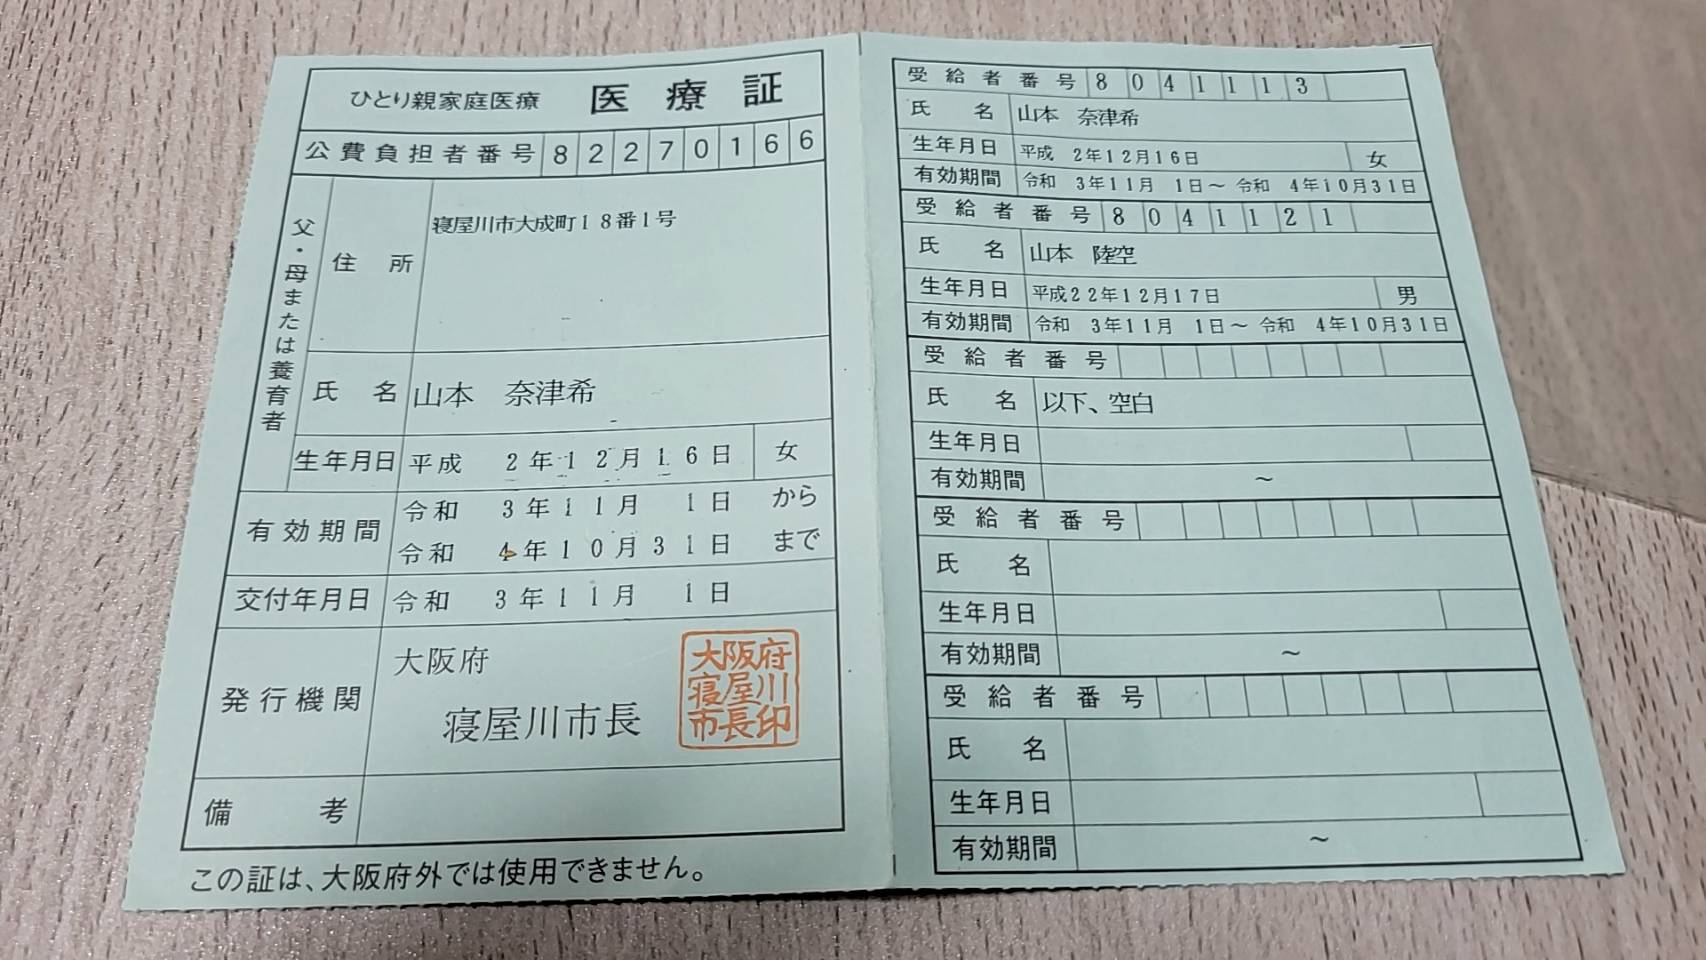 ひとり親家庭医療 医療証
公費負担者番号 82270166
父・母または養育者
住所 寝屋川市大成町18番1号
氏名 山本 奈津希
生年月日 平成 2年12月16日 女
有効期間 令和 3年11月 1日 から
令和 4年10月31日 まで
交付年月日 令和 3年11月 1日
発行機関 大阪府
寝屋川市長
大阪府
寝屋川
市長印
備考
この証は、大阪府外では使用できません。
受給者番号 8041113
氏名 山本 奈津希
生年月日 平成 2年12月16日 女
有効期間 令和 3年11月 1日～令和 4年10月31日
受給者番号 8041121
氏名 山本 陸空
生年月日 平成22年12月17日 男
有効期間 令和 3年11月 1日～令和 4年10月31日
受給者番号
氏名 以下、空白
生年月日
有効期間 ～
受給者番号
氏名
生年月日
有効期間 ～
受給者番号
氏名
生年月日
有効期間 ～